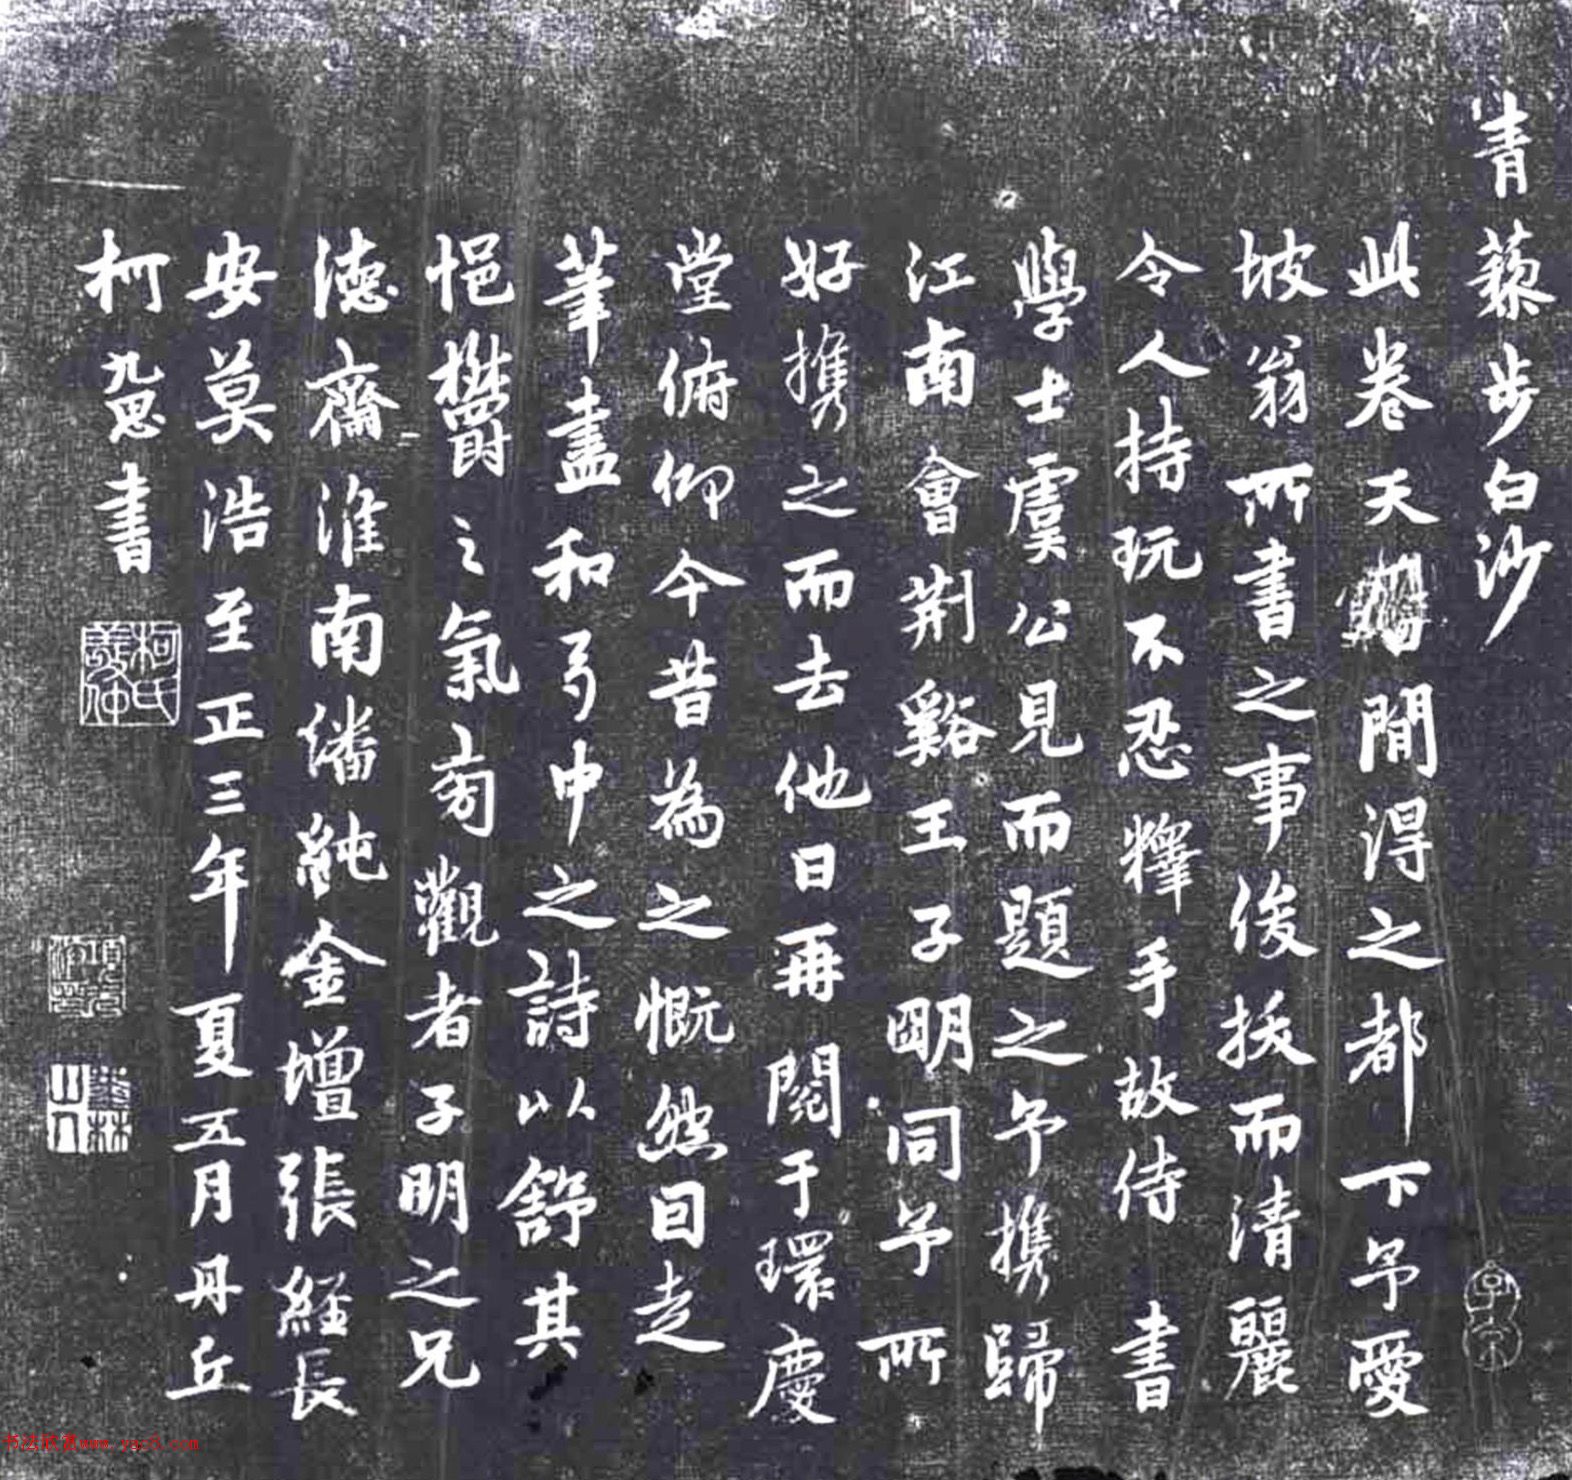 青藜步白沙
此卷天間得之都下予愛
坡翁所書之事俊拔而清麗
令人持玩不忍釋手故侍書
學士虞公見而題之予携歸
江南會荆谿王子明同予所
好携之而去他日再閱于環慶
堂俯仰今昔為之慨然因走
筆盡和弓中之詩以舒其
悒鬱之氣旁觀者子明之兄
德齋淮南潘純金壇張經長
安莫浩至正三年夏五月丹丘
柯九思書
柯氏敬仲